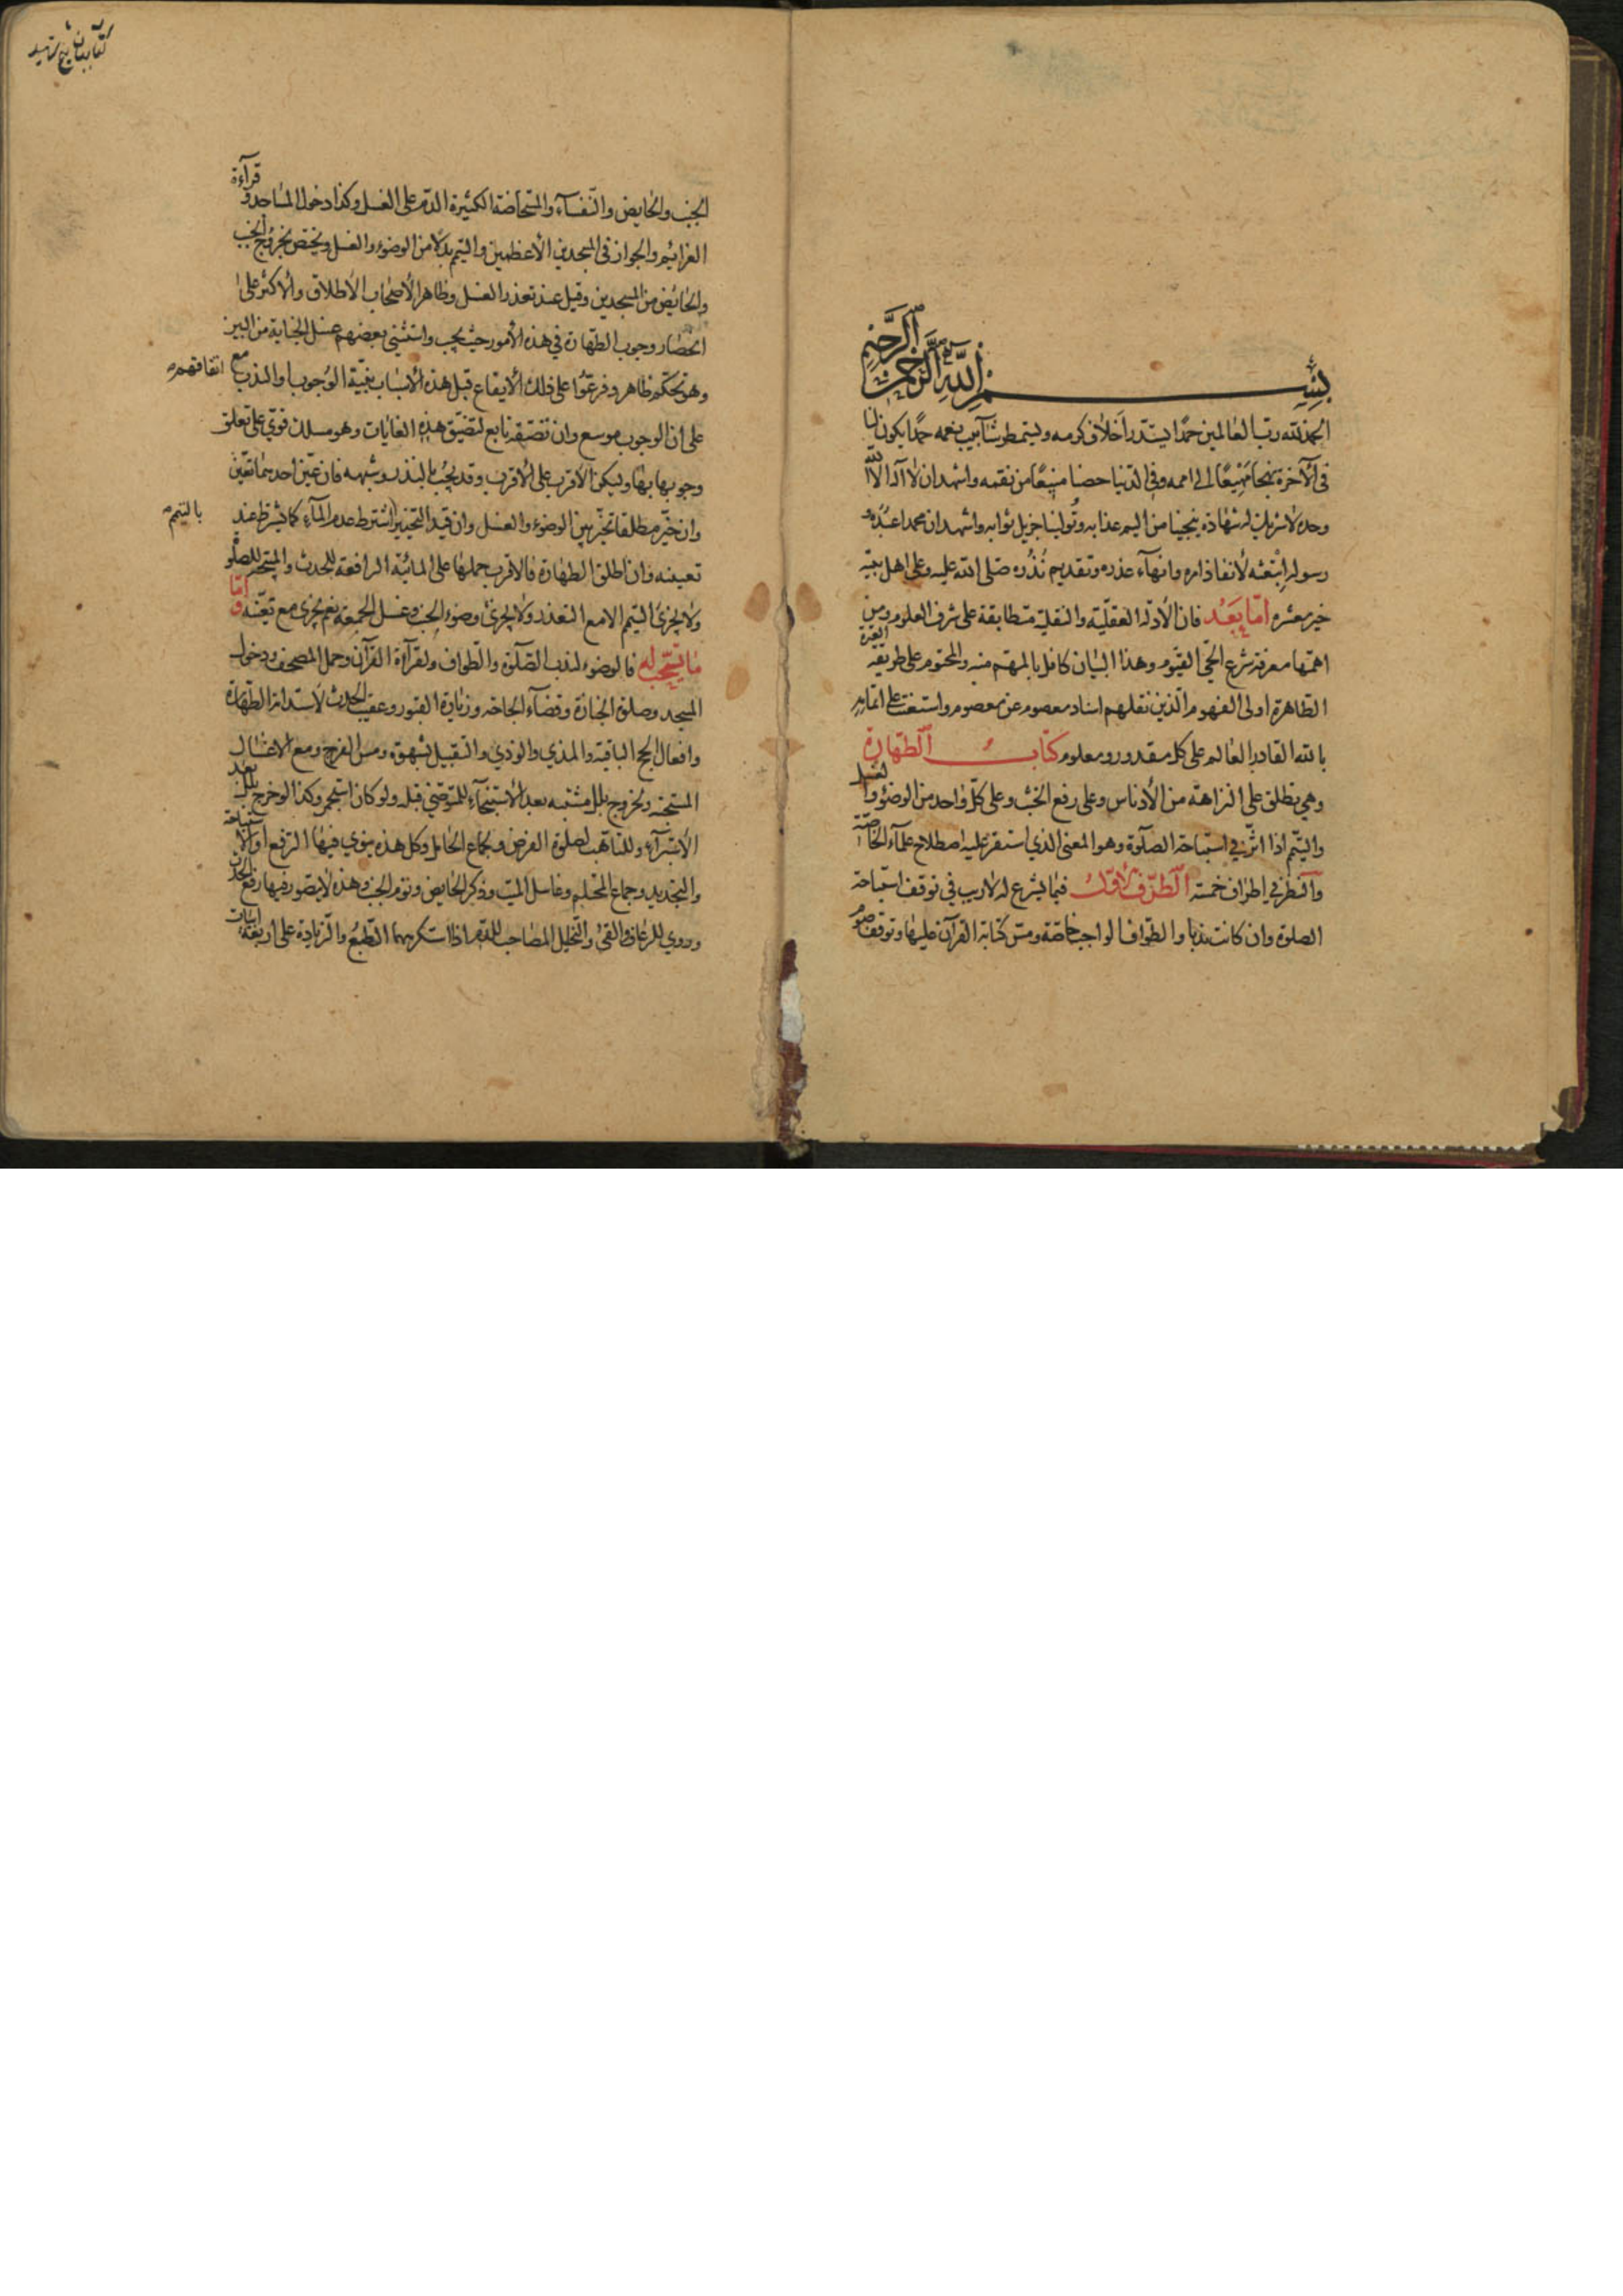 بسم الله الرحمن الرحيم
الحمد لله رب العالمين حمدا يستدر اخلاف كرمه ويستمطر شآبيب نعمه حمدا يكون لنا
في الآخرة منهجا مهيعا الى اممه وفي الدنيا حصنا منيعا من نقمه واشهد ان لا اله الا الله
وحده لا شريك له شهادة ينجينا من اليم عذابه وتولينا جزيل ثوابه واشهد ان محمدا عبده و
رسوله ابتعثه لأنفاذ امره وانهآء عذره وتقديم نذره صلى الله عليه وعلى اهل بيته
خير معشره اما بعد فان الأدلة العقلية والنقلية متطابقة على شرف العلوم ومن
اهمها معرفة شرع الحي القيوم وهذا البيان كافل بالمهم منه والمحتوم على طريقة العترة
الطاهرة اولى الفهوم الذين نقلهم اسناد معصوم عن معصوم واستعنت على اتمامه
بالله القادر العالم على كل مقدور ومعلوم كتاب الطهارة
وهي يطلق على النزاهة من الأدناس وعلى رفع الخبث وعلى كل واحد من الوضوء والغسل
والتيمم اذا اثر في استباحة الصلوة وهو المعنى الذي استقر عليه اصطلاح علمآء الخاصة
والنظر في اطراف خمسة الطرف الاول فيما يشرع له لا ريب في توقف استباحة
الصلوة وان كانت ندبا والطواف الواجب خاصة ومس كتابة القرآن عليها وتوقف صوم
كتاب بيان شيخ شهيد
الجنب والحايض والنفسآء والمستحاضة الكثيرة الدم على الغسل وكذا دخول المساجد وقرآءة
العزائم والجواز في المسجدين الأعظمين والتيمم بدلا من الوضوء والغسل ويختص بخروج الجنب
والحائض من المسجدين وقيل عند تعذر الغسل وظاهر الأصحاب الأطلاق والأكثر على
انحصار وجوب الطهارة في هذه الأمور حيث يجب واستثنى بعضهم غسل الجنابة من البين
وهو تحكم ظاهر وفرعوا على ذلك الأيقاع قبل هذه الأسباب بنية الوجوب او الندب مع اتفاقهم
على ان الوجوب موسع وان تضيقه تابع لتضيق هذه الغايات وهو مسلك قوي على تعلق
وجوبها بها وليكن الأقرب على الأقرب وقد يجب بالنذر وشبهه فان عين احديهما تعين
وان خير مطلقا تخير بين الوضوء والغسل وان قيد التخيير بالتيمم اشترط عدم المآء كما يشترط عند
تعيينه وان اطلق الطهارة فالاقرب حملها على المائية الرافعة للحدث والمبيحة للصلوة
ولا يجزى التيمم الا مع التعذر ولا يجزئ وضوء الجنب وغسل الجمعة نعم يجزى مع تعينه واما
ما يستحب له فالوضوء لندب الصلوة والطواف ولقرآءة القرآن وحمل المصحف ودخول
المسجد وصلوة الجنازة وقضآء الحاجة وزيارة القبور وعقيب الحدث لاستدامة الطهارة
وافعال الحج الباقية والمذي والوذي والتقبيل بشهوة ومس الفرج ومع الاغسال
المستحبة ولخروج بلل مشتبه بعد الأستنجآء للمتوضئ قبله ولو كان استجمر وكذا لو خرج بلل بعد
الأستبرآء وللتأهب لصلوة الفرض ولجماع الحامل وكل هذه ينوي فيها الرفع او الاستباحة
والتجديد وجماع المحتلم وغاسل الميت وذكر الحايض ونوم الجنب وهذه لا يتصور فيها رفع الحدث
وروي للرعاف والقئ والتخليل المصاحب للدم اذا استكرههما الطبع والزيادة على اربعة ابيات